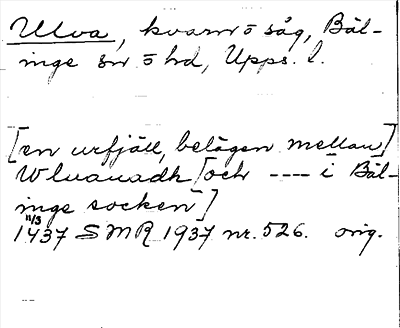 Ulva, kvarn o såg, Bäl-
inge sn o hd, Upps. l.
[en urfjäll, belägen mellan]
Wluauadh [och ---- i Bäl-
inge socken]
11/3
1437 SMR 1937 nr. 526. orig.